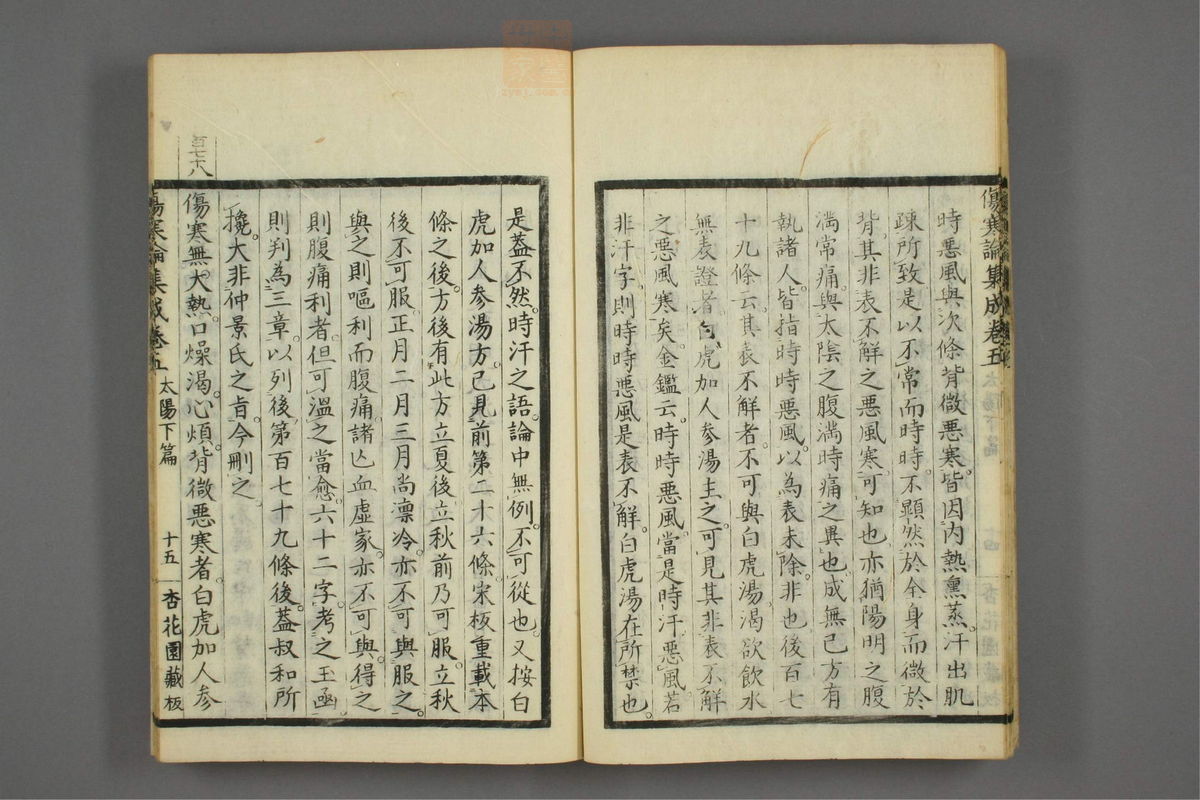 傷寒論集成卷五
時惡風與次條背微惡寒。皆因内熱熏蒸。汗出肌
疎所致是以不常而時時。不顯然於全身而微於
背。其非表不解之惡風寒可知也亦猶陽明之腹
満常痛。與太陰之腹満時痛之異也。成無己方有
執諸人。皆指時時惡風。以為表未除。非也後百七
十九條云。其表不解者。不可與白虎湯渴欲飲水
無表證者。白虎加人参湯主之。可見其非表不解
之惡風寒矣。金鑑云。時時惡風。當是時汗惡風若
非汗字。則時時惡風是表不解。白虎湯在所禁也。
是蓋不然。時汗之語。論中無例。不可從也。又按白
虎加人参湯方。已見前第二十六條。宋板重載本
條之後。方後有此方立夏後立秋前乃可服。立秋
後不可服。正月二月三月尚凛冷。亦不可與服之
與之則嘔利而腹痛。諸亾血虛家。亦不可與。得之
則腹痛利者。但可溫之當愈。六十二字。考之玉函
則判為三章。以列後第百七十九條後。蓋叔和所
攙。大非仲景氏之旨。今刪之
傷寒無大熱。口燥渴。心煩。背微惡寒者。白虎加人参
傷寒論集成卷五 太陽下篇 十五 杏花園藏板